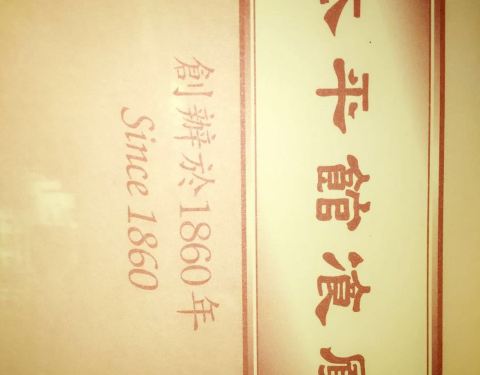 太平館飡廳
創辦於1860年
Since 1860